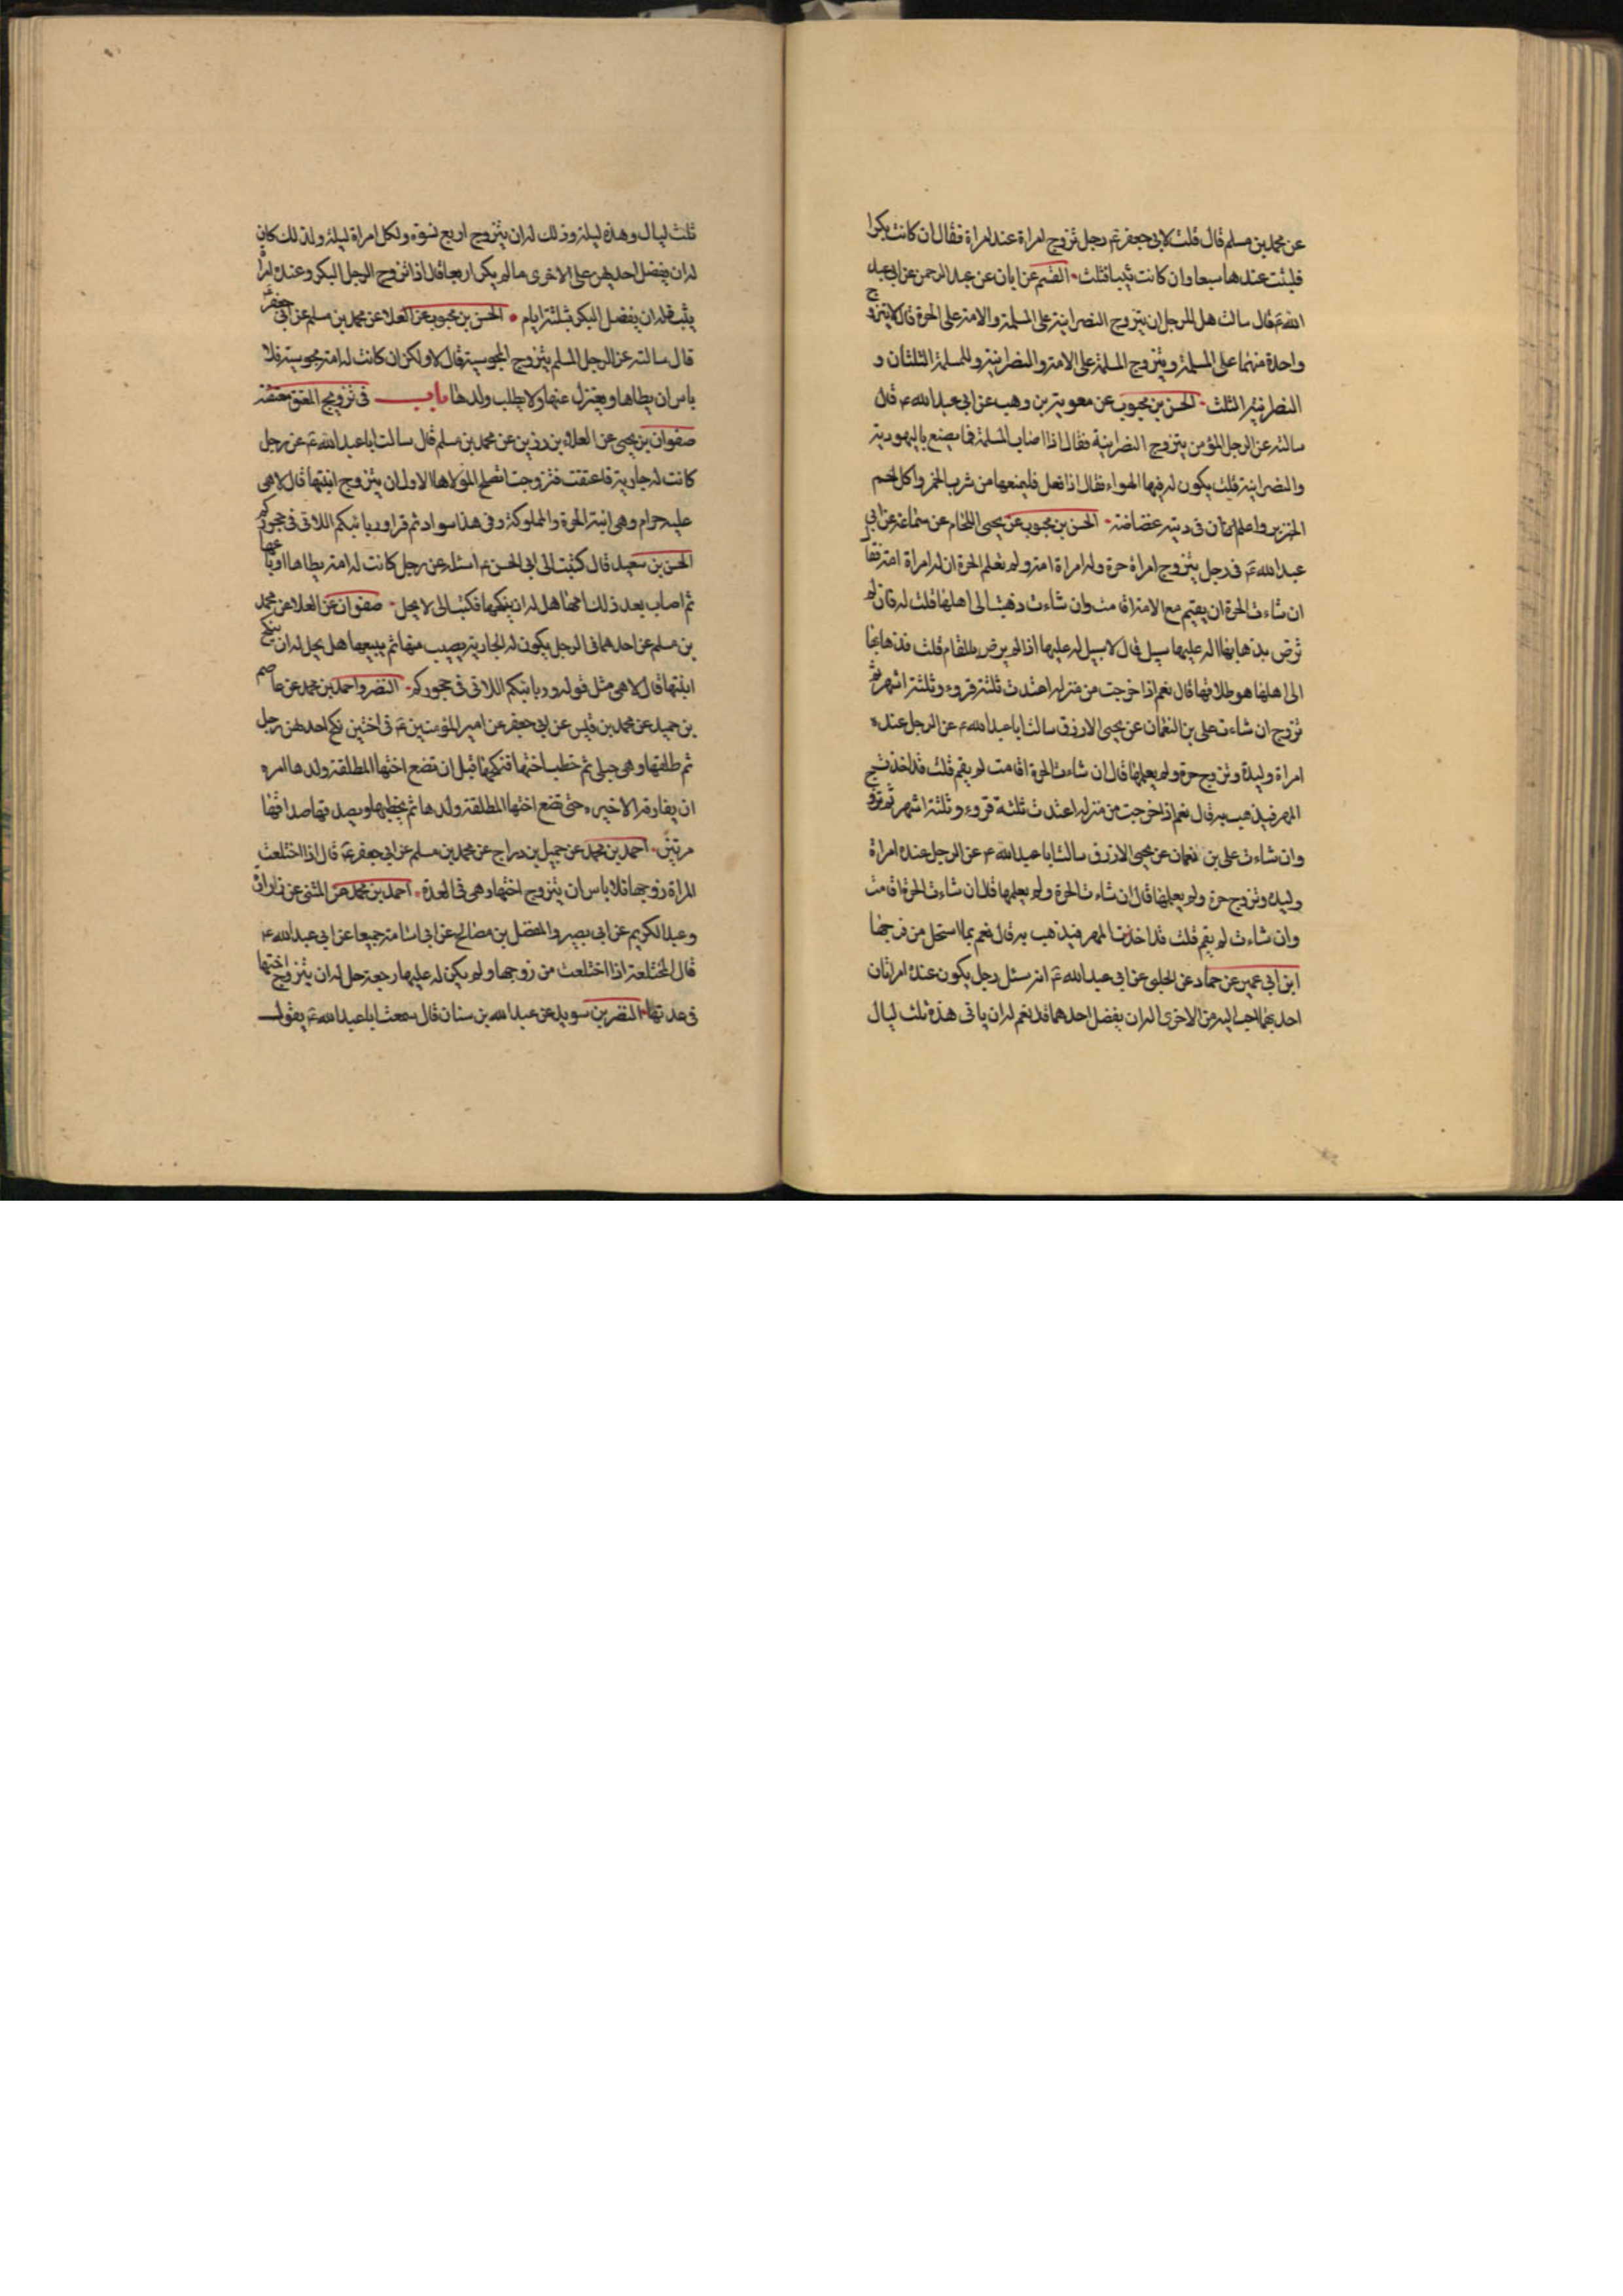 عن محمد بن مسلم قال قلت لابى جعفر ع‍ رجل تزوج امراة عند امراة فقال ان كانت بكرا
فليثت عندها سبعا وان كانت ثيبا فثلث القسم عن ابان عن عبد الرحمن عن ابى عبد
الله ع‍ قال سالت هل للرجل ان يتزوج النصرانية على المسلمة والامة على الحرة قال لا يتزوج
واحدة منهما على المسلمة ويتزوج المسلمة على الامة والنصرانية وللمسلمة الثلثان و
النصرانية الثلث الحسن بن محبوب عن معوية بن وهب عن ابى عبد الله ع قال
سالته عن الرجل المؤمن يتزوج النصرانية فقال اذا اصاب المسلمة فما يصنع باليهودية
والنصرانية قلت يكون له فيها الهواء فقال اذا فعل فليمنعها من شرب الخمر واكل لحم
الخنزير واعلم ان فى دينه غضاضة الحسن بن محبوب عن يحيى اللحام عن سماعة عن ابى
عبد الله ع‍ فى رجل يتزوج امراة حرة وله امراة امة ولم تعلم الحرة ان له امراة امة فقال
ان شاءت الحرة ان يقيم مع الامة اقامت وان شاءت ذهبت الى اهلها قلت له فان لم
ترض بذهابها اله عليها سبيل قال لا سبيل له عليها اذا لم يرض بالمقام قلت فذهابها
الى اهلها هو طلاقها قال نعم اذا خرجت من منزله اعتدت ثلثة قروء وثلثة اشهر ثم
تزوج ان شاءت على بن النعمان عن يحيى الازرق سالت ابا عبد الله ع عن الرجل عنده
امراة وليدة وتزوج حرة ولم يعلمها قال ان شاءت الحرة اقامت لم يقم قلت قد اخذت
المهر فيذهب به قال نعم اذا خرجت من منزله اعتدت ثلثة قروء وثلثة اشهر ثم تزوج
وان شاءت على بن نعمان عن يحيى الازرق سالت ابا عبد الله ع عن الرجل عنده امراة
وليدة وتزوج حرة ولم يعلمها قال ان شاءت الحرة ولم يعلمها قال ان شاءت الحرة اقامت
وان شاءت لم يقم قلت قد اخذت المهر فيذهب به قال نعم بما استحل من فرجها
ابن ابى عمير عن حماد عن الحلبى عن ابى عبد الله ع‍ انه سئل رجل يكون عنده امراتان
احديهما احب اليه من الاخرى اله ان يفضل احدهما قال نعم له ان ياتى هذه ثلث ليال
ثلث ليال وهذه ليلة وذلك له ان يتزوج اربع نسوة ولكل امراة ليلة ولذلك كان
له ان يفضل احديهن على الاخرى ما لم يكن اربعا قال اذا تزوج الرجل البكر وعنده امراة
يثب فله ان يفضل البكر بثلثة ايام الحسن بن محبوب عن العلا عن محمد بن مسلم عن ابى جعفر ع
قال سالته عن الرجل المسلم يتزوج المجوسية قال لا ولكن ان كانت له امة مجوسية فلا
باس ان يطاها ويعتزل عنها ولا يطلب ولدها باب فى تزويج المعتق معتقته
صفوان بن يحيى عن العلاء بن رزين عن محمد بن مسلم قال سالت ابا عبد الله ع‍ عن رجل
كانت له جارية فاعتقت فتزوجت ايصلح لمولاها الاول ان يتزوج ابنتها قال لا هى
عليه حرام وهى ابنة الحرة والمملوكة وفى هذا سواد ثم قرا وربائبكم اللاتى فى حجوركم
الحسن بن سعيد قال كتبت الى ابى الحسن ع اسئله عن رجل كانت له امة يطاها
ثم اصاب بعد ذلك امها هل له ان ينكحها فكتب لى لا يحل صفوان عن العلا عن محمد
بن مسلم عن احدهما فى الرجل يكون له الجارية يصيب منها ثم يبيعها هل يحل له ان ينكح
ابنتها قال لا هى مثل قوله وربائبكم اللاتى فى حجوركم النضر واحمد بن محمد عن عاصم
بن حميد عن محمد بن قيس عن ابى جعفر عن امير المؤمنين ع‍ فى اختين نكح احدهن رجل
ثم طلقها وهى حبلى ثم خطب اختها فنكحها قبل ان تضع اختها المطلقة ولدها امره
ان يفارق الاخيرة حتى تضع اختها المطلقة ولدها ثم يخطبها ويصدقها صداقها
مرتين احمد بن محمد عن جميل بن دراج عن محمد بن مسلم عن ابى جعفر ع‍ قال اذا اختلعت
المراة زوجها فلا باس ان يتزوج اختها وهى فى العدة احمد بن محمد عن المثنى عن زرارة
وعبد الكريم عن ابى بصير والمفضل بن صالح عن ابى اسامة جميعا عن ابى عبد الله ع
قال المختلعة اذا اختلعت من زوجها ولم يكن له عليها رجعة حل له ان يتزوج اختها
فى عدتها النضر بن سويد عن عبد الله بن سنان قال سمعت ابا عبد الله ع‍ يقول